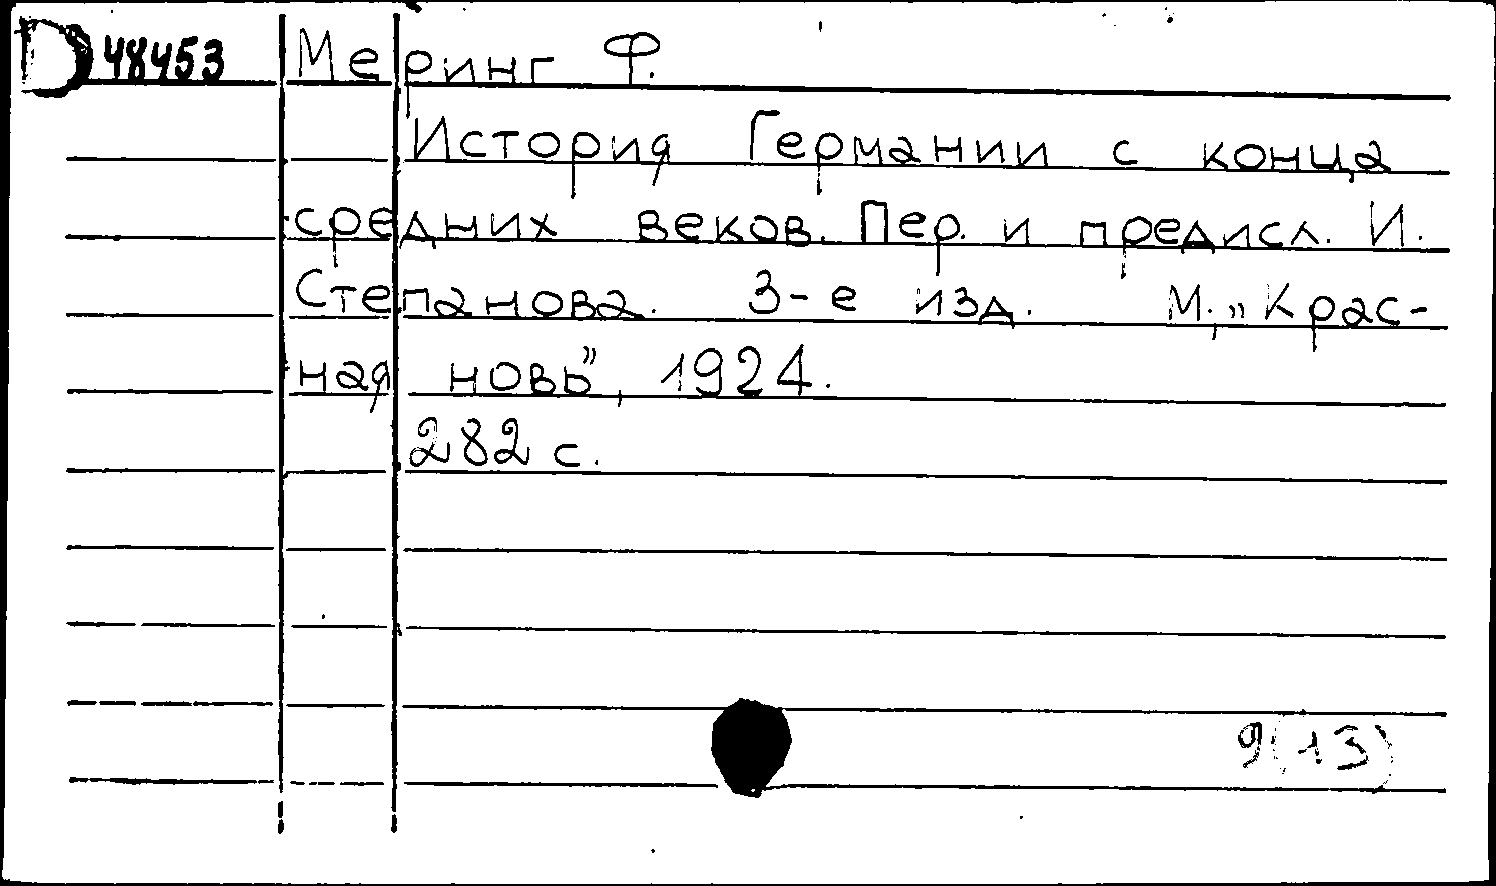 D 48453 Меринг Ф.
История Германии с конца
средних веков. Пер. и предисл. И.
Степанова. 3-е изд. М., „Крас-
ная новь”, 1924.
282 с.
9(13)